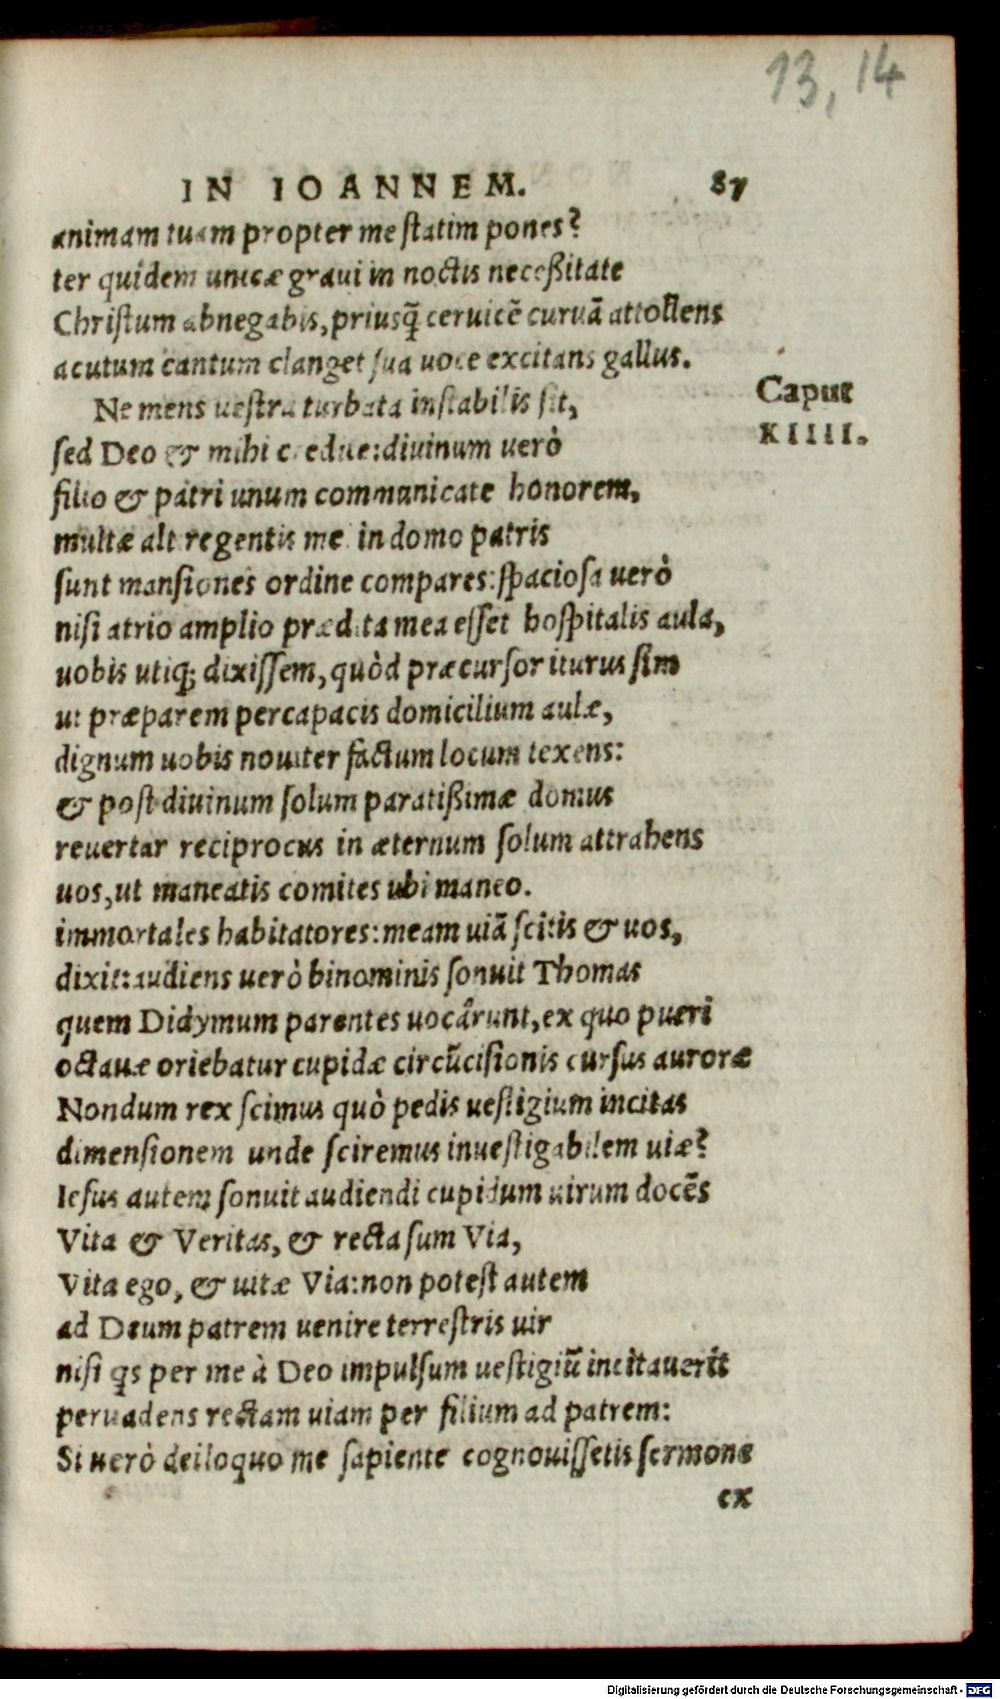 13, 14
IN IOANNEM. 87
animam tuam propter me statim pones?
ter quidem unicæ graui in noctis neceßitate
Christum abnegabis, priusq̃ ceruicẽ curuã attollens
acutum cantum clanget sua uoce excitans gallus.
Ne mens uestra turbata instabilis sit,
Caput
XIIII.
sed Deo & mihi credite: diuinum uerò
filio & patri unum communicate honorem,
multæ alt regentis me in domo patris
sunt mansiones ordine compares: spaciosa uerò
nisi atrio amplio prædita mea esset hospitalis aula,
uobis utiq; dixissem, quòd præcursor iturus sim
ut præparem percapacis domicilium aulæ,
dignum uobis nouiter factum locum texens:
& post diuinum solum paratißimæ domus
reuertar reciprocus in æternum solum attrahens
uos, ut maneatis comites ubi maneo.
immortales habitatores: meam uiã scitis & uos,
dixit: audiens uerò binominis sonuit Thomas
quem Didymum parentes uocârunt, ex quo pueri
octauæ oriebatur cupidæ circũcisionis cursus auroræ
Nondum rex scimus quò pedis uestigium incitas
dimensionem unde sciremus inuestigabilem uiæ?
Iesus autem sonuit audiendi cupidum uirum docẽs
Vita & Veritas, & recta sum Via,
Vita ego, & uitæ Via: non potest autem
ad Deum patrem uenire terrestris uir
nisi q̃s per me à Deo impulsum uestigiũ incitauerit
peruadens rectam uiam per filium ad patrem:
Si uerò deiloquo me sapiente cognouissetis sermone
ex
Digitalisierung gefördert durch die Deutsche Forschungsgemeinschaft - DFG